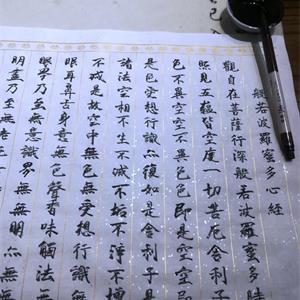 般若波羅蜜多心經
觀自在菩薩行深般若波羅蜜多時
照見五蘊皆空度一切苦厄舍利子
色不異空空不異色色即是空空即
是色受想行識亦復如是舍利子是
諸法空相不生不滅不垢不淨不增
不減是故空中無色無受想行識無
眼耳鼻舌身意無色聲香味觸法無
眼界乃至無意識界無無明亦無
明盡乃至無老